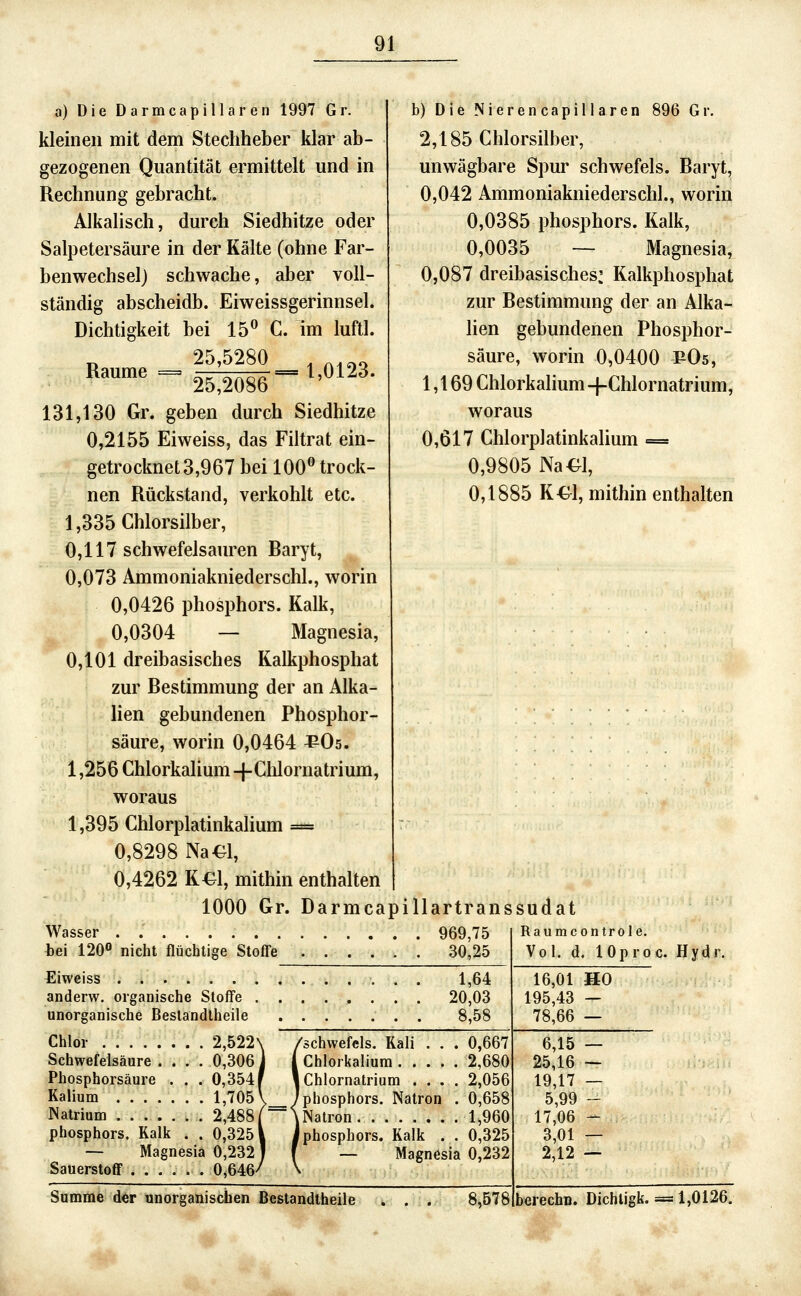 91
a) Die Darmcapillaren 1997 Gr.
kleinen mit dem Stechheber klar ab-
gezogenen Quantität ermittelt und in
Rechnung gebracht.
Alkalisch, durch Siedhitze oder
Salpetersäure in der Kälte (ohne Far-
benwechsel) schwache, aber voll-
ständig abscheidb. Eiweissgerinnsel.
Dichtigkeit bei 15⁰ C. im luftl.
Raume = 25,5280 / 25,2086 = 1,0123.
131,130 Gr. geben durch Siedhitze
0,2155 Eiweiss, das Filtrat ein-
getrocknet 3,967 bei 100⁰ trock-
nen Rückstand, verkohlt etc.
1,335 Chlorsilber,
0,117 schwefelsauren Baryt,
0,073 Ammoniakniederschl., worin
0,0426 phosphors. Kalk,
0,0304 — Magnesia,
0,101 dreibasisches Kalkphosphat
zur Bestimmung der an Alka-
lien gebundenen Phosphor-
säure, worin 0,0464 PO5.
1,256 Chlorkalium+Chlornatrium,
woraus
1,395 Chlorplatinkalium =
0,8298 NaCl,
0,4262 KCl, mithin enthalten
b) Die Nierencapillaren 896 Gr.
2,185 Chlorsilber,
unwägbare Spur schwefels. Baryt,
0,042 Ammoniakniederschl., worin
0,0385 phosphors. Kalk,
0,0035 — Magnesia,
0,087 dreibasisches; Kalkphosphat
zur Bestimmung der an Alka-
lien gebundenen Phosphor-
säure, worin 0,0400 PO5,
1,169 Chlorkalium+Chlornatrium,
woraus
0,617 Chlorplatinkalium =
0,9805 NaCl,
0,1885 KCl, mithin enthalten
1000 Gr. Darmcapillartranssudat
Wasser . . . . . . . . . . . . . . . 969,75 Raumcontrole.
bei 120⁰ nicht flüchtige Stoffe . . . . . . 30,25 Vol. d. 10proc. Hydr.
Eiweiss . . . . . . . . . . . . . . 1,64 16,01 HO
anderw. organische Stoffe . . . . . . . . 20,03 195,43 —
unorganische Bestandtheile . . . . . . . 8,58 78,66 —
Chlor . . . . . . . . 2,522 schwefels. Kali . . . 0,667 6,15 —
Schwefelsäure . . . . 0,306 Chlorkalium . . . . . 2,680 25,16 —
Phosphorsäure . . . 0,354 Chlornatrium . . . . 2,056 19,17 —
Kalium . . . . . . . 1,705 = phosphors. Natron . 0,658 5,99 —
Natrium . . . . . . . 2,488 Natron . . . . . . . . 1,960 17,06 —
phosphors. Kalk . . 0,325 phosphors. Kalk . . 0,325 3,01 —
— Magnesia 0,232 — Magnesia 0,232 2,12 —
Sauerstoff . . . . . . 0,646
Summe der unorganischen Bestandtheile . . . 8,578 berechn. Dichtigk. = 1,0126.